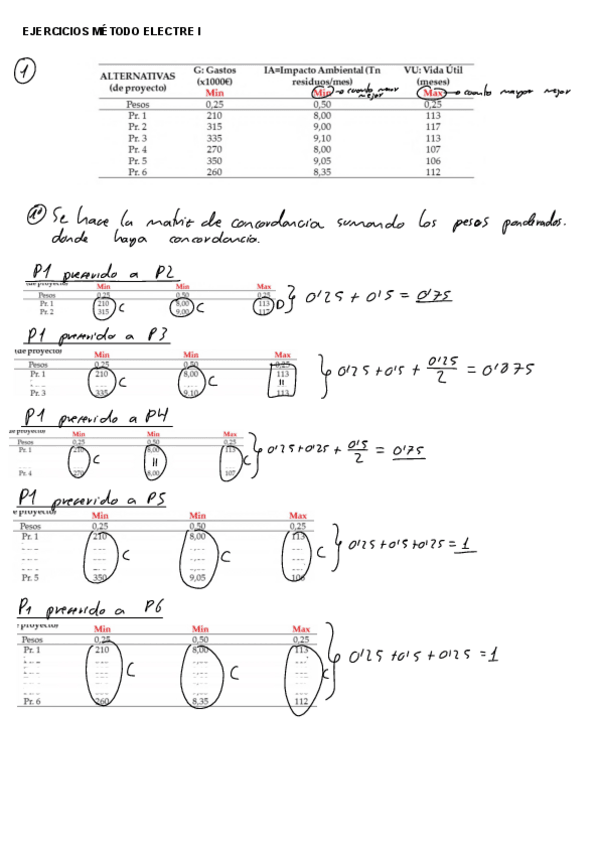 EJERCICIOS MÉTODO ELECTRE I
1
ALTERNATIVAS (de proyecto) G: Gastos (x1000€) Min IA=Impacto Ambiental (Tn residuos/mes) Min → cuanto menor mejor VU: Vida Útil (meses) Max → cuanto mayor mejor
Pesos 0,25 0,50 0,25
Pr. 1 210 8,00 113
Pr. 2 315 9,00 117
Pr. 3 335 9,10 113
Pr. 4 270 8,00 107
Pr. 5 350 9,05 106
Pr. 6 260 8,35 112
1º Se hace la matriz de concordancia sumando los pesos ponderados.
donde haya concordancia.
P1 preferido a P2
Min Min Max
Pesos 0,25 0,50 0,25
Pr. 1 210 8,00 113
Pr. 2 315 9,00 117
C C D 0'25 + 0'5 = 0'75
P1 preferido a P3
de proyecto) Min Min Max
Pesos 0,25 0,50 0,25
Pr. 1 210 8,00 113
Pr. 3 335 9,10 113
C C = 0'25 + 0'5 + 0'25/2 = 0'875
P1 preferido a P4
e proyecto) Min Min Max
Pesos 0,25 0,50 0,25
Pr. 1 210 8,00 113
Pr. 4 270 8,00 107
C = C 0'25 + 0'25 + 0'5/2 = 0'75
P1 preferido a P5
e proyecto) Min Min Max
Pesos 0,25 0,50 0,25
Pr. 1 210 8,00 113
Pr. 5 350 9,05 106
C C C 0'25 + 0'5 + 0'25 = 1
P1 preferido a P6
proyecto) Min Min Max
Pesos 0,25 0,50 0,25
Pr. 1 210 8,00 113
Pr. 6 260 8,35 112
C C C 0'25 + 0'5 + 0'25 = 1